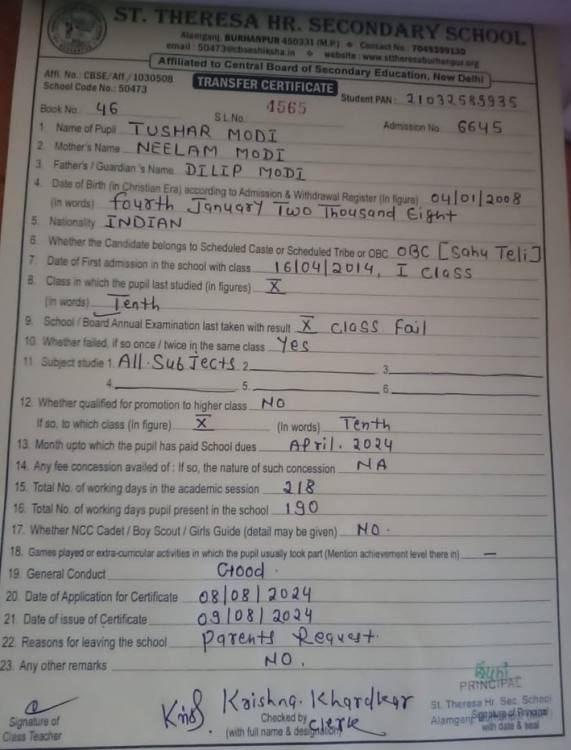 ST. THERESA HR. SECONDARY SCHOOL
Alamganj, BURHANPUR 450331 (M.P.) Contact No.: 7049399130
email : 50473@cbseshiksha.in website : www.sttheresaburhanpur.org
Affiliated to Central Board of Secondary Education, New Delhi
Affi. No.: CBSE/Aff./1030508
School Code No.: 50473
TRANSFER CERTIFICATE
Student PAN: 21032585935
Book No. 46 S.L.No. 4565 Admission No. 6645
1. Name of Pupil TUSHAR MODI
2. Mother's Name NEELAM MODI
3. Father's / Guardian 's Name DILIP MODI
4. Date of Birth (in Christian Era) according to Admission & Withdrawal Register (In figura) 04/01/2008
(in words) fourth January Two Thousand Eight
5. Nationality INDIAN
6. Whether the Candidate belongs to Scheduled Caste or Scheduled Tribe or OBC OBC [Sahu Teli]
7. Date of First admission in the school with class 16/04/2014, I Class
8. Class in which the pupil last studied (in figures) X
(In words) Tenth
9. School / Board Annual Examination last taken with result X Class Fail
10. Whether failed, if so once / twice in the same class Yes
11. Subject studie 1. All Subjects 2. 3.
4. 5. 6.
12. Whether qualified for promotion to higher class NO
If so, to which class (In figure) X (In words) Tenth
13. Month upto which the pupil has paid School dues April. 2024
14. Any fee concession availed of : If so, the nature of such concession NA
15. Total No. of working days in the academic session 218
16. Total No. of working days pupil present in the school 190
17. Whether NCC Cadet / Boy Scout / Girls Guide (detail may be given) NO.
18. Games played or extra-curricular activities in which the pupil usually took part (Mention achievement level there in) —
19. General Conduct Good.
20. Date of Application for Certificate 08/08/2024
21. Date of issue of Certificate 09/08/2024
22. Reasons for leaving the school Parents Request.
23. Any other remarks NO.
PRINCIPAL
Krishna. Khardkar
St. Theresa Hr. Sec. School
Signature of
Class Teacher
Checked by Clerk
(with full name & designation)
Alamganj
Signature of Principal
with date & seal